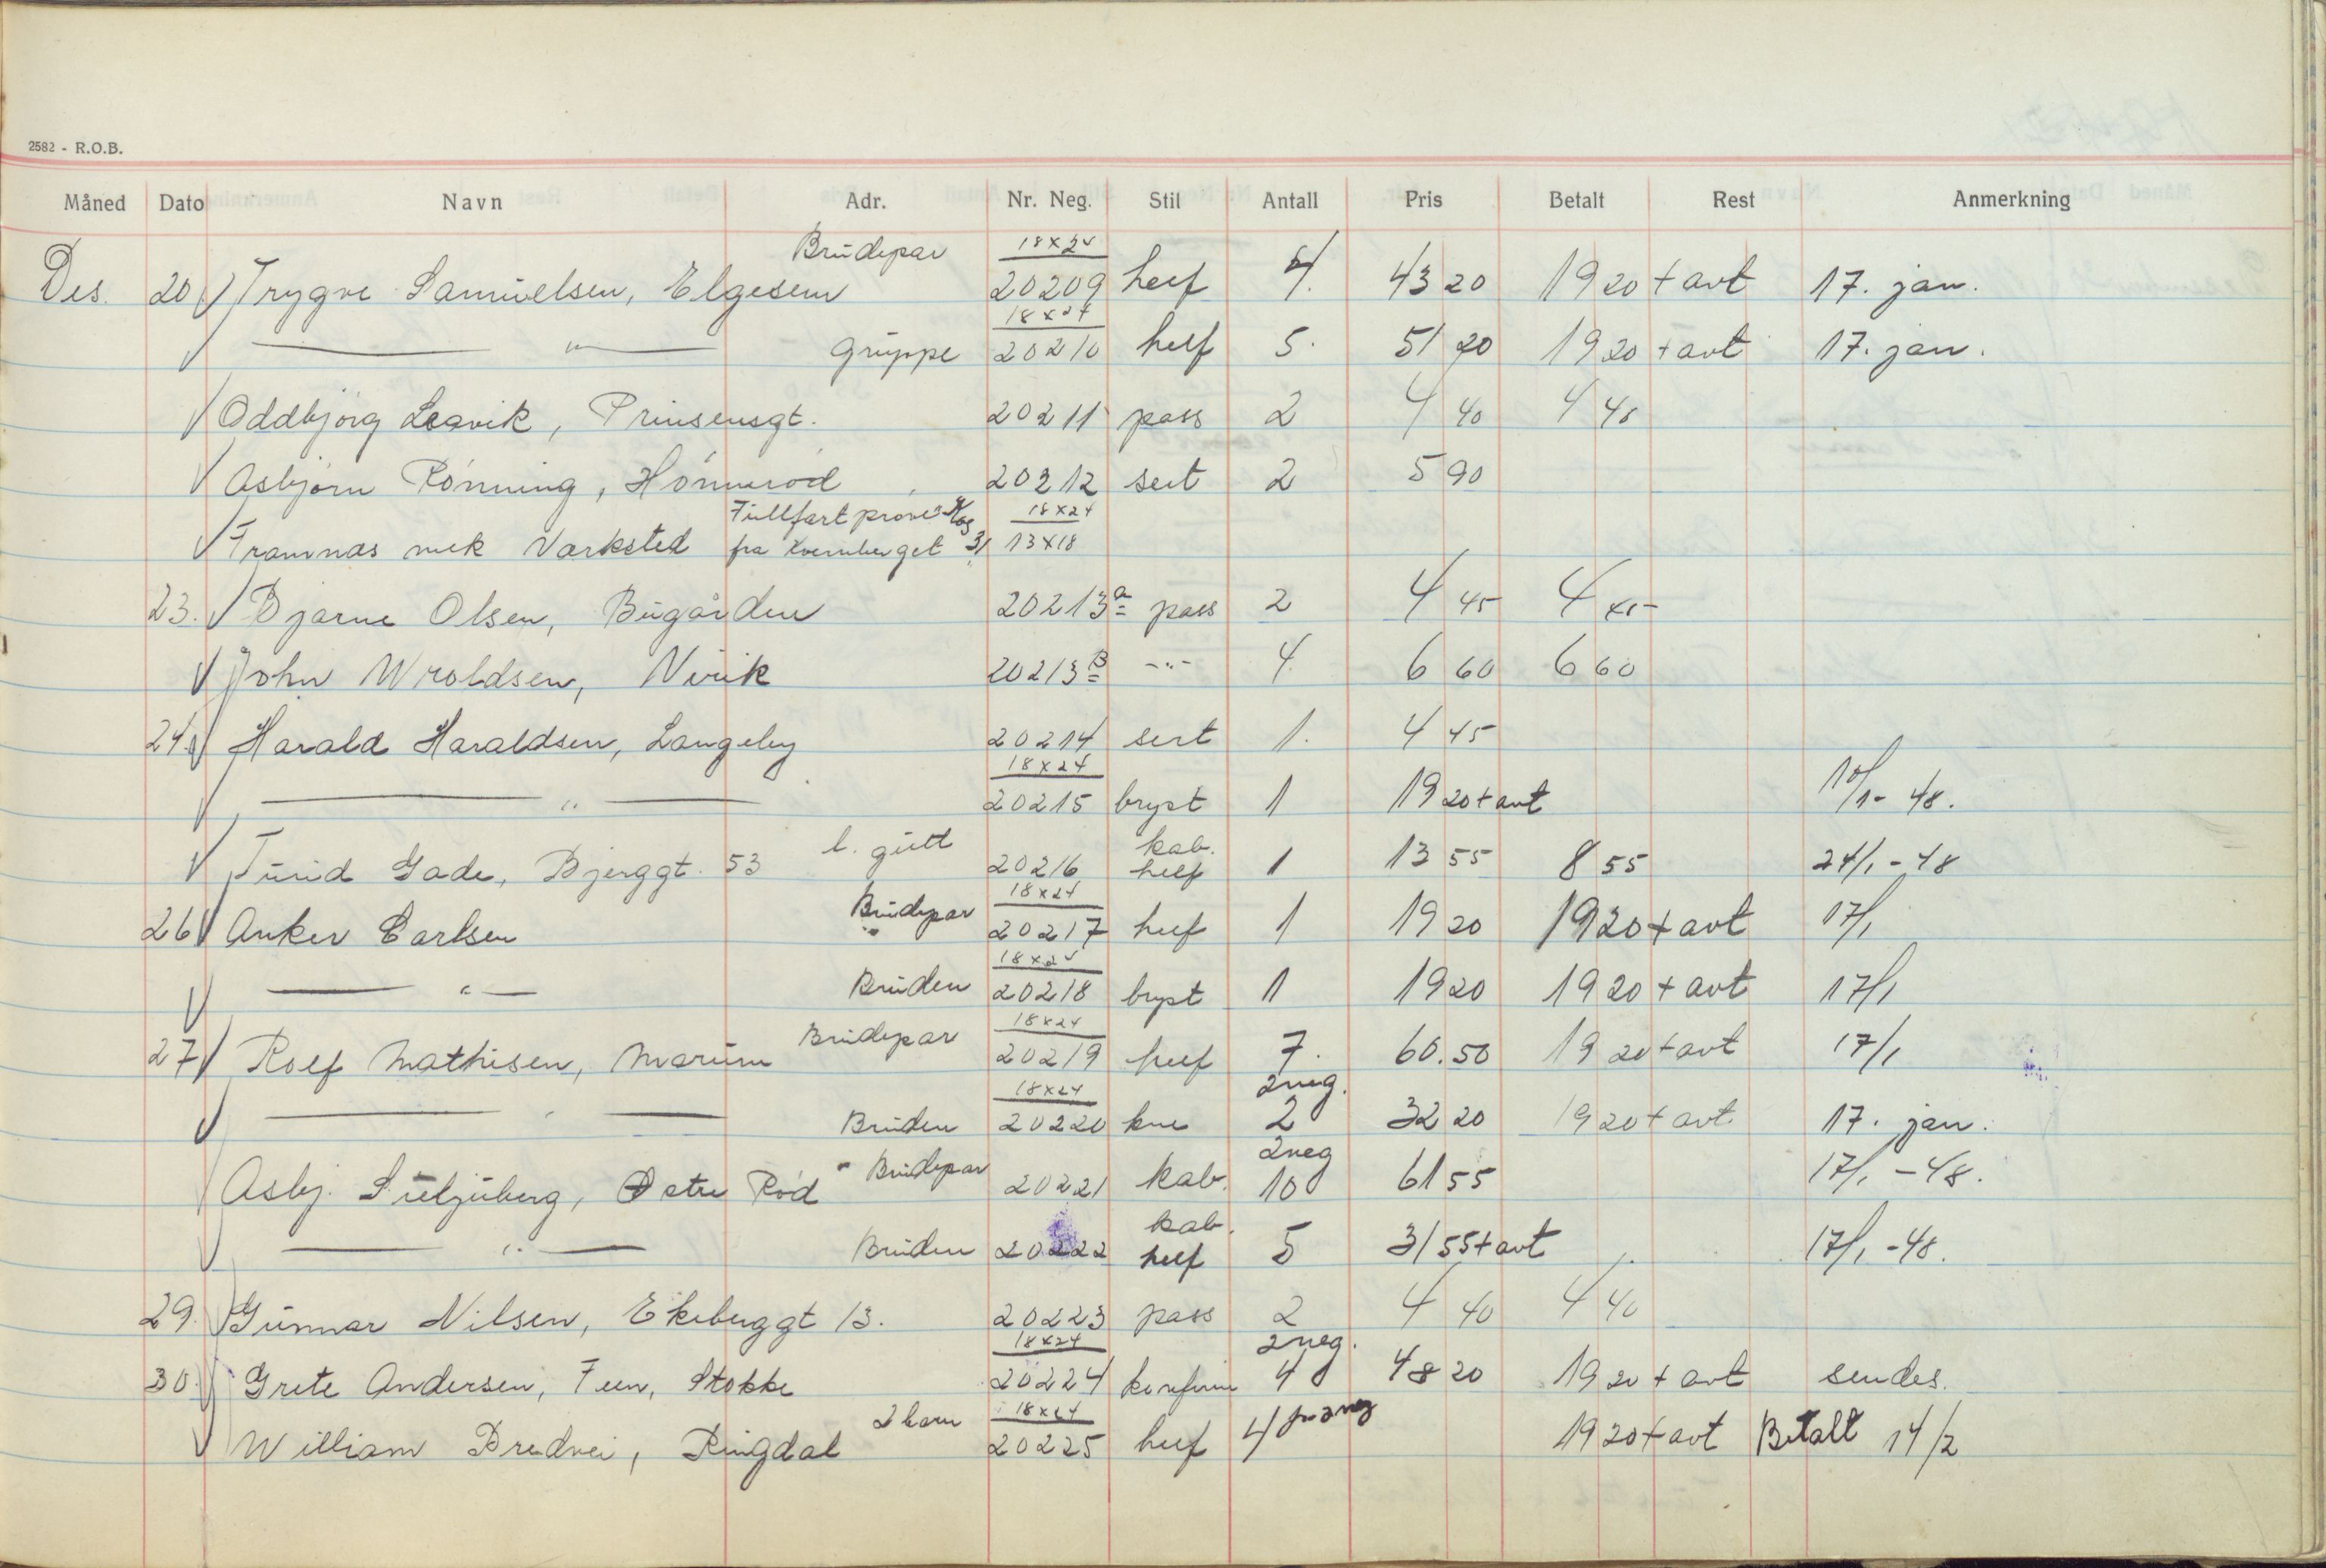 2582 - R.O.B.
Måned Dato Navn Adr. Nr. Neg. Stil Antall Pris Betalt Rest Anmerkning
Brudepar 18x24
Des. 20 Trygve Samuelsen, Elgesem 20209 helf 4. 43 20 19 20 + avt 17. jan.
18x24
—— " —— Gruppe 20210 helf 5. 51 20 19 20 + avt 17. jan.
Oddbjörg Leavik, Prinsensgt. 20211 pass 2 4 40 4 40
Asbjörn Rönning, Hönneröd 20212 sert 2 5 90
Fullfart prove 18x24
Framnæs mek Værksted fra Kvernberget 31 13x18
23. Bjarne Olsen, Bugården 20213a pass 2 4 45 4 45
John Wroldsen, Nvik 20213B -"- 4. 6 60 6 60
24. Harald Haraldsen, Langeby 20214 sert 1. 4 45
18x24
—— " —— 20215 bryst 1 19 20 + avt 10/1- 48.
l. gutt kab.
Turid Gade, Bjerggt. 53 20216 helf 1 13 55 8 55 24/1 - 48
Brudepar 18x24
26 Anker Carlsen 20217 helf 1 19 20 19 20 + avt 17/1
18x24
—— " — Bruden 20218 bryst 1 19 20 19 20 + avt 17/1
Brudepar 18x24
27 Rolf Mathisen, Marum 20219 helf 7. 60.50 19 20 + avt 17/1
18x24 2neg.
—— " —— Bruden 20220 kne 2 32 20 19 20 + avt. 17. jan.
Brudepar 2neg
Asbj. Suljuberg, Østre Röd 20221 kab. 10 61 55 17/1 - 48.
kab.
—— " —— Bruden 20222 helf 5 31 55 + avt 17/1 - 48.
29. Gunnar Nilsen, Ekeberggt 13. 20223 pass 2 4 40 4 40
18x24 2neg.
30. Grete Andersen, Feen, Stokke 20224 konfirm 4 48 20 19 20 + avt sendes.
2 barn 18x24
William Bredvei, Ringdal 20225 helf 4 19 20 + avt Betalt 14/2